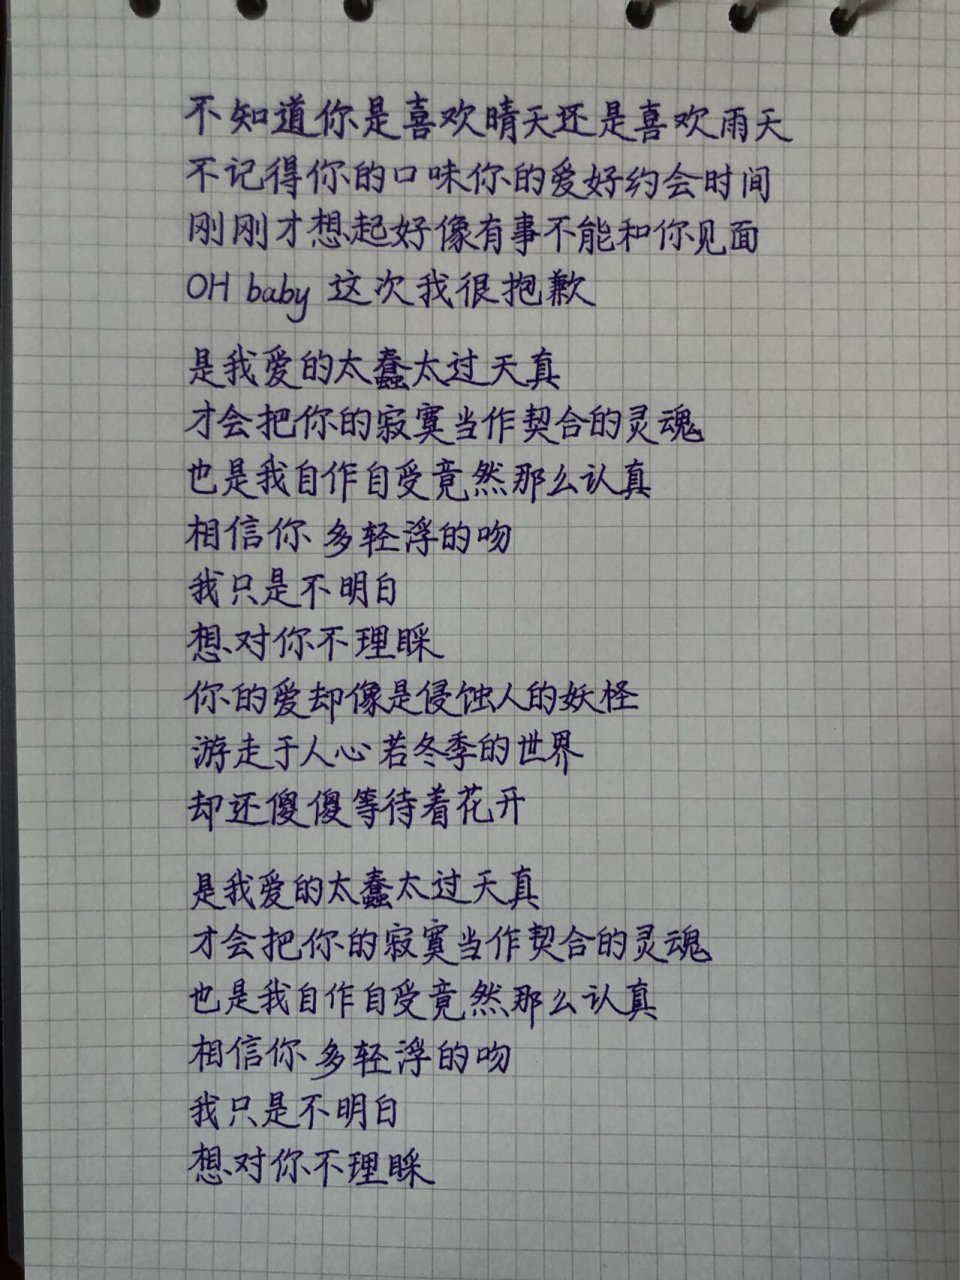 不知道你是喜欢晴天还是喜欢雨天
不记得你的口味你的爱好约会时间
刚刚才想起好像有事不能和你见面
OH baby 这次我很抱歉
是我爱的太蠢太过天真
才会把你的寂寞当作契合的灵魂
也是我自作自受竟然那么认真
相信你 多轻浮的吻
我只是不明白
想对你不理睬
你的爱却像是侵蚀人的妖怪
游走于人心 若冬季的世界
却还傻傻等待着花开
是我爱的太蠢太过天真
才会把你的寂寞当作契合的灵魂
也是我自作自受竟然那么认真
相信你 多轻浮的吻
我只是不明白
想对你不理睬